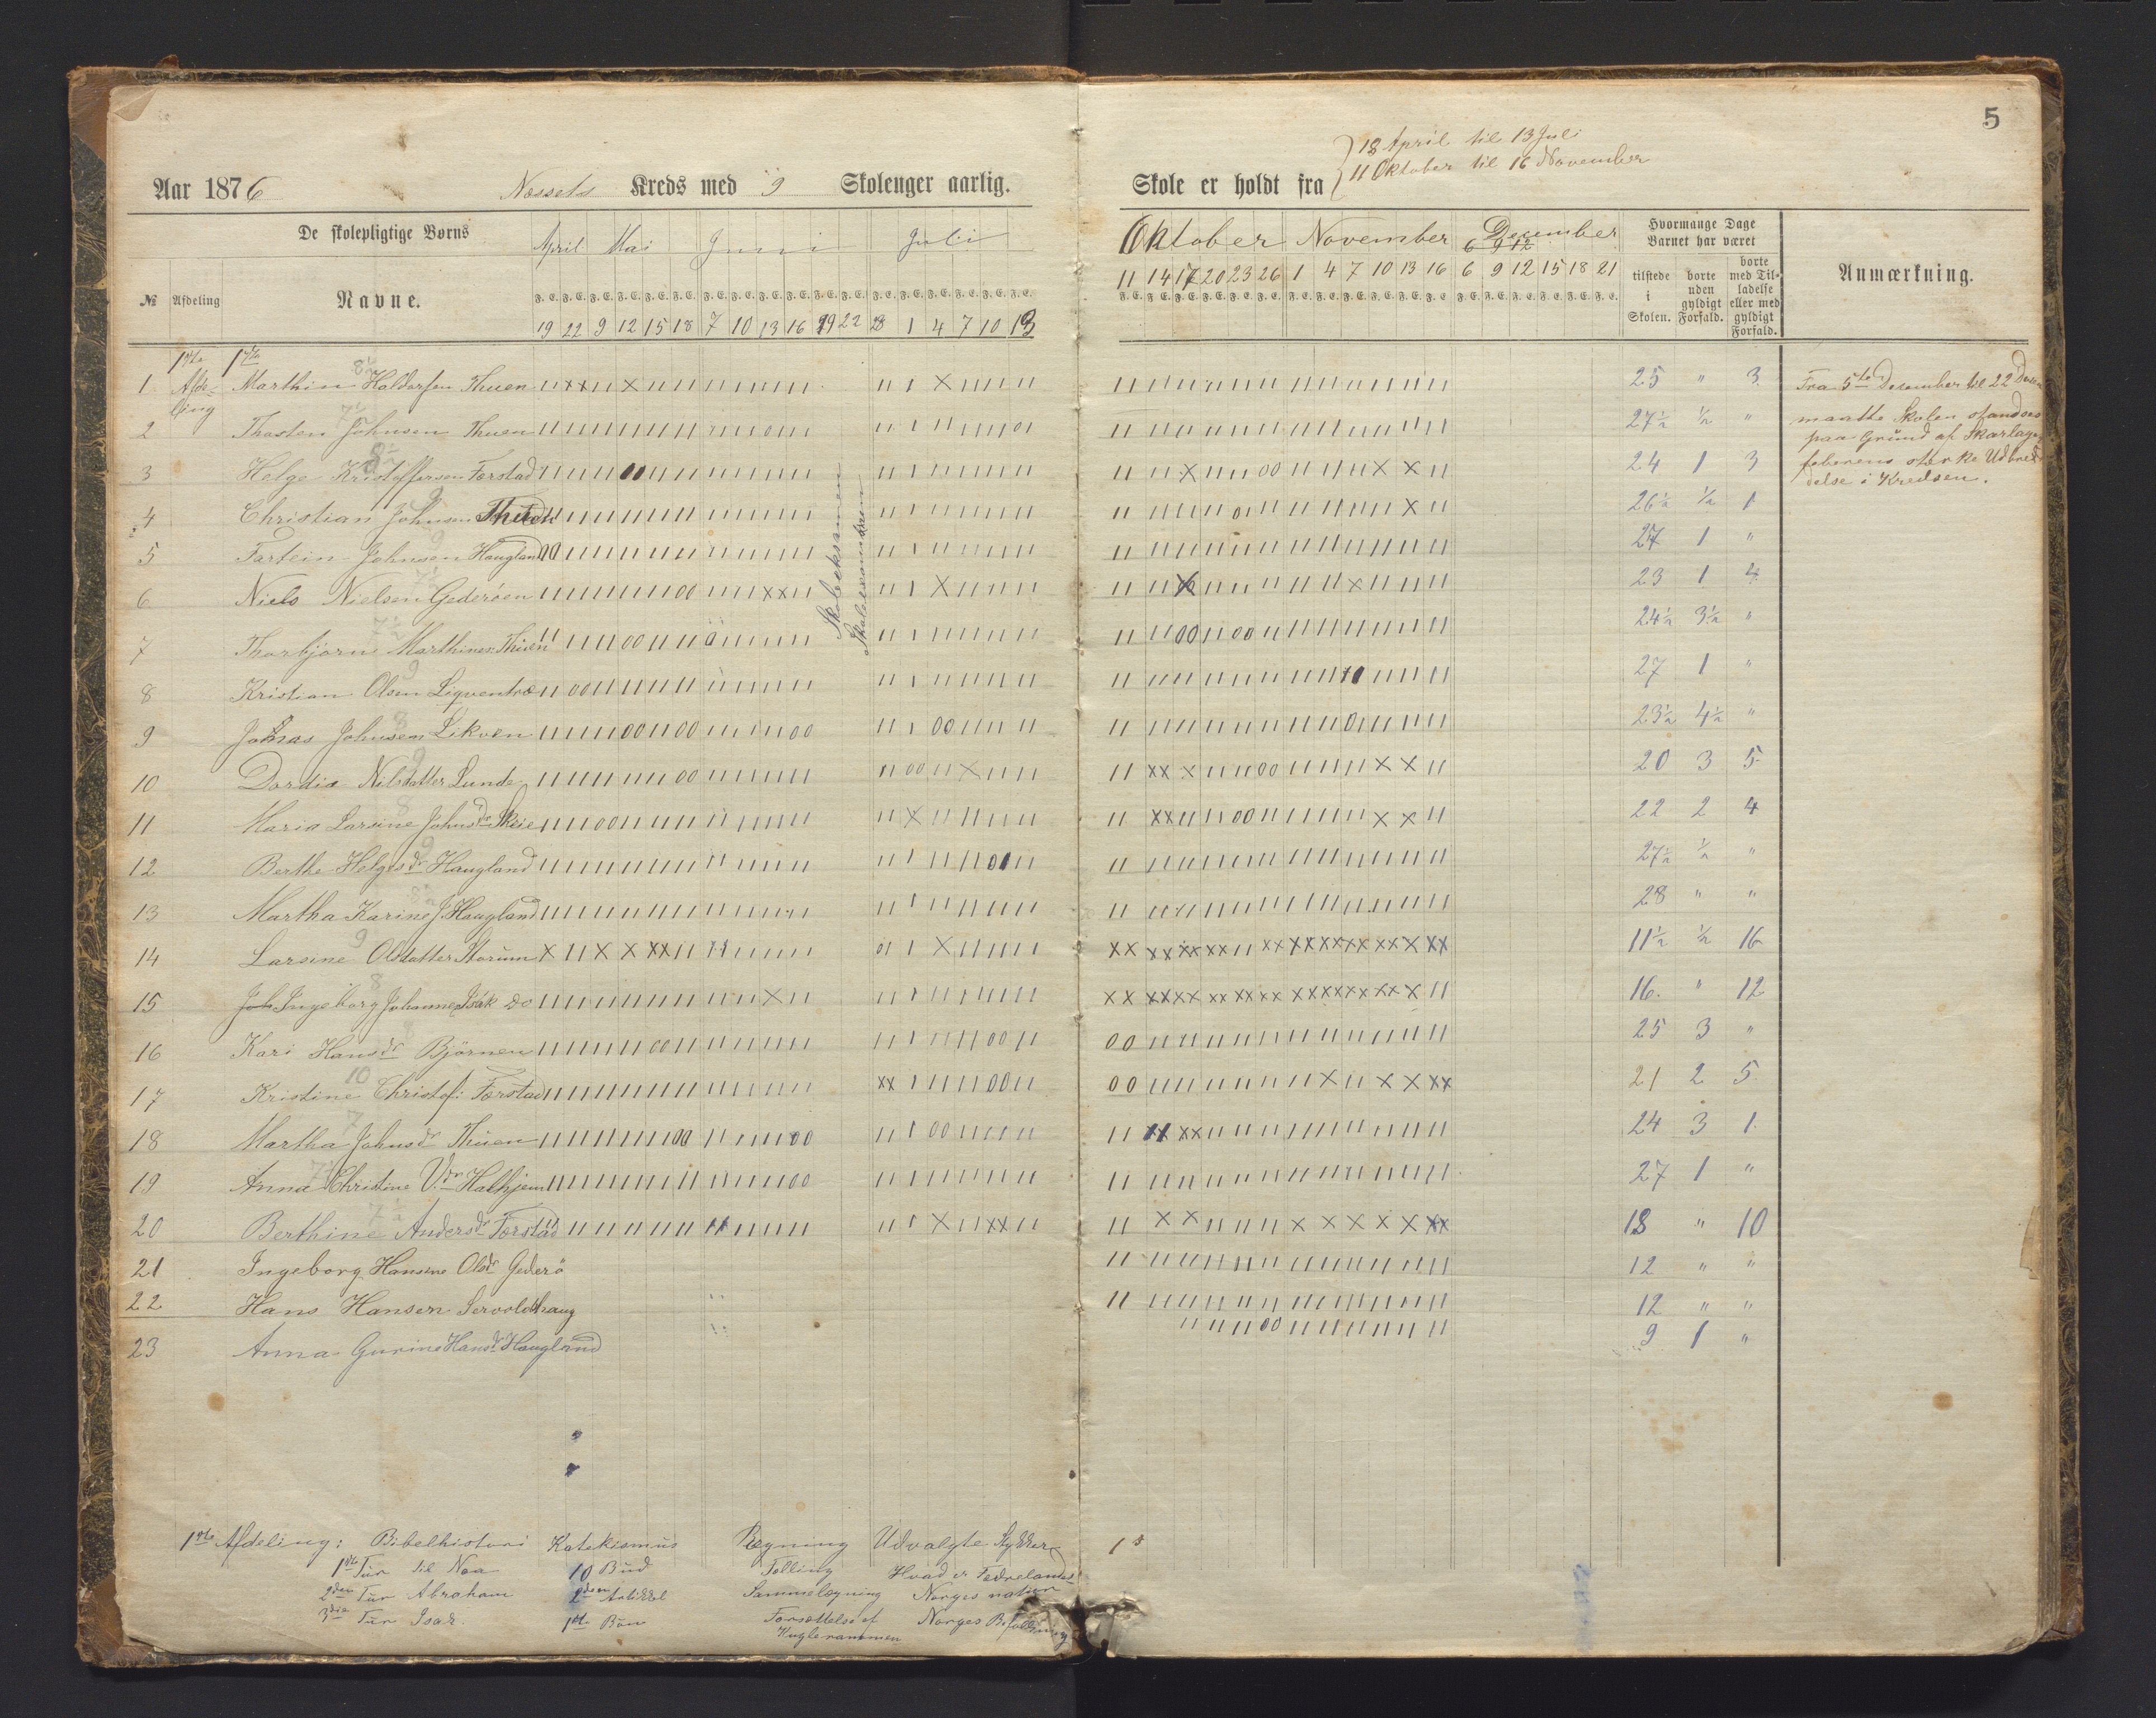 5
Aar 1876 Nessets Kreds med 9 Skoleuger aarlig.
Skole er holdt fra
18 April til 13 Juli
11 Oktober til 16 November
De skolepligtige Børns
April Mai Juni Juli
No Afdeling Navne.
19 22 9 12 15 18 7 10 13 16 19 22 28 1 4 7 10 13
Oktober November December
6 9 12
11 14 17 20 23 26 1 4 7 10 13 16 6 9 12 15 18 21
Hvormange Dage Barnet har været
tilstede i Skolen.
borte uden gyldigt Forfald.
borte med Tilladelse eller med gyldigt Forfald.
Anmærkning.
1ste Afdeling
1ste
1 Marthin Haldorsen Thuen 25 " 3
2 Thosten Johnsen Thuen 27½ ½ "
3 Helge Kristoffersen Færstad 24 1 3
4 Christian Johnsen 26½ ½ 1
5 Tartein Johnsen Haugland 27 1 "
6 Niels Nielsen Gederøen 23 1 4
7 Thorbjørn Marthines. Thuen 24½ 3½ "
8 Kristian Olsen Liqventræ 27 1 "
9 Johnas Johnsen Likven 23½ 4½ "
10 Dordia Nilsdatter Lunde 20 3 5
11 Maria Larsine Johnsdr Skeie 22 2 4
12 Berthe Helgesdr Haugland 27½ ½ "
13 Martha Karine J. Haugland 28 " "
14 Larsine Olsdatter Storum 11½ ½ 16
15 Ingeborg Johanne Isak do 16. " 12
16 Kari Hansdr Bjørnen 25 3 "
17 Kristine Christof: Færstad 21 2 5
18 Martha Johnsdr Thuen 24 3 1
19 Anna Christine V.dr Halhjem 27 1 "
20 Berthine Andersdr Færstad 18 " 10
21 Ingeborg Hansine Olsdr Gederö 12 " "
22 Hans Hansen Servoldhaug 12 " "
23 Anna Gurine Hansdr Haugland 9 1 "
Skoleeksamen
Fra 5te Desember til 22 Desem
maatte Skolen standses
paa Grund af Skarlagens
feberens sterke Udbre
delse i Kredsen.
1ste Afdeling: Bibelhistori Katekismus Regning Udvalgte Stykker
1ste Tur til Noa 10 Bud Telling Hvad er Fedrelandet
2den Tur Abraham 2den Artikkel Sammelægning Norges natur
3die Tur Isak. 1ste Bøn Forsættelse af Kuglerammen Norges Befolkning